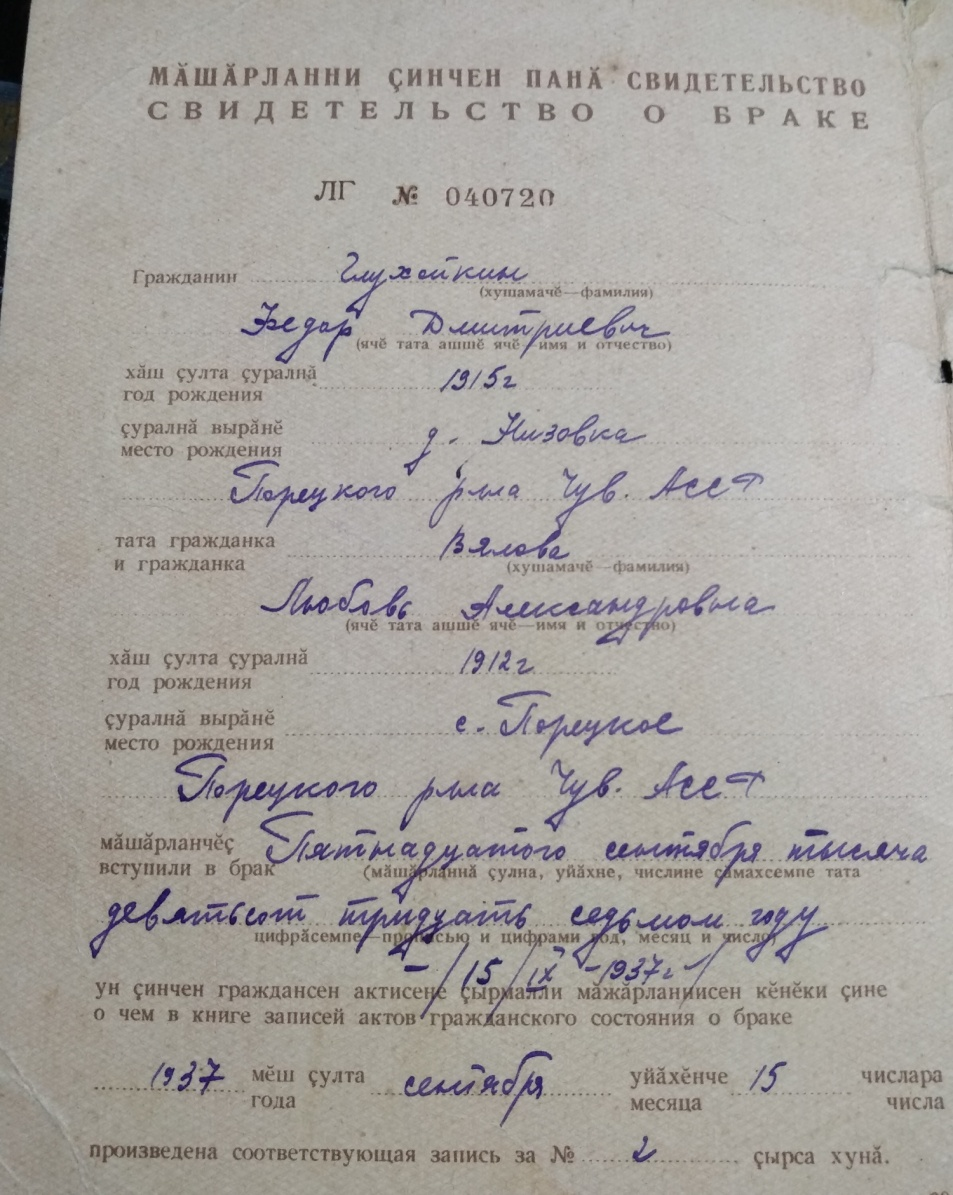 МӐШӐРЛАННИ ҪИНЧЕН ПАНӐ СВИДЕТЕЛЬСТВО
СВИДЕТЕЛЬСТВО О БРАКЕ
ЛГ № 040720
Гражданин Глухойкин
(хушамачӗ—фамилия)
Федор Дмитриевич
(ячӗ тата ашшӗ ячӗ—имя и отчество)
хӑш ҫулта ҫуралнӑ
год рождения 1915г
ҫуралнӑ вырӑнӗ
место рождения д. Низовка
Порецкого р-на Чув. АССР
тата гражданка
и гражданка Вялова
(хушамачӗ—фамилия)
Любовь Александровна
(ячӗ тата ашшӗ ячӗ—имя и отчество)
хӑш ҫулта ҫуралнӑ
год рождения 1912г
ҫуралнӑ вырӑнӗ
место рождения с. Порецкое
Порецкого р-на Чув. АССР
мӑшӑрланчӗҫ
вступили в брак Пятнадцатого сентября тысяча
(мӑшӑрланнӑ ҫулна, уйӑхне, числине сӑмахсемпе тата
девятьсот тридцать седьмом году
цифрӑсемпе—прописью и цифрами год, месяц и число)
– /15/IX – 1937г/
ун ҫинчен граждансен актисене ҫырмалли мӑжӑрланниисен кӗнӗки ҫине
о чем в книге записей актов гражданского состояния о браке
1937 мӗш ҫулта сентября уйӑхӗнче 15 числара
года месяца числа
произведена соответствующая запись за № 2 ҫырса хунӑ.